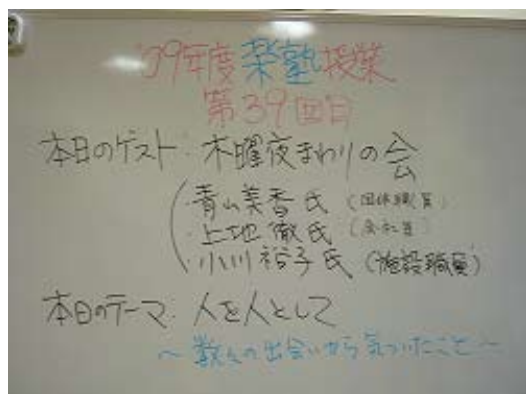 '09年度楽塾授業
第39回目
本日のゲスト:木曜夜まわりの会
・青山美香氏(団体職員)
・上地徹氏(会社員)
・小川裕子氏(施設職員)
本日のテーマ:人を人として
~数々の出会いから気づいたこと~